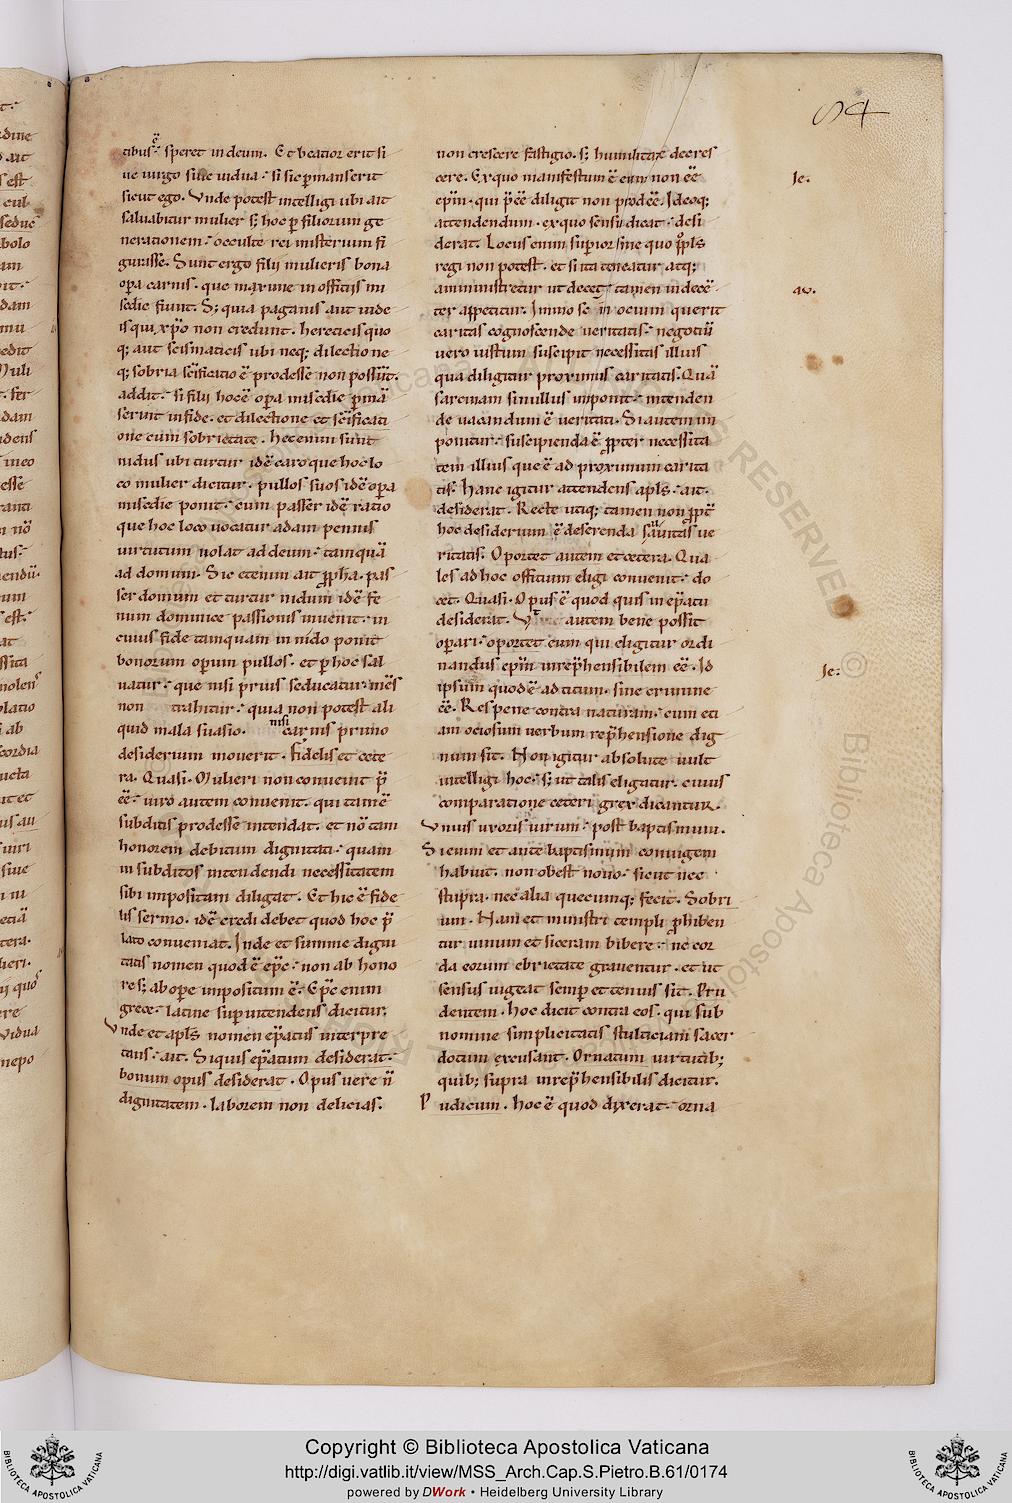 tibus ẽ. speret in deum. Et beatior erit si
ue uirgo siue uidua. si sic p̱manserit
sicut ego. Vnde potest intelligi ubi ait
saluabitur mulier s; hoc p̱ filiorum ge
nerationem. occulte rei misterium fi
gurasse. Sunt ergo filii mulieris bona
op̱a carnis. que maxime in officiis mi
s̅edie fiunt. S; quia paganis aut iude
is qui xp̅o non credunt. hereticis quo
q; aut scismaticis ubi neq; dilectio ne
q; sobria sc̅ificatio ẽ prodesse non possūt.
addit. si filii hoc ẽ op̱a mis̅edie p̱mā
serint in fide. et dilectione et sc̅ificati
one cum sobrietate. hec enim sunt
nidus ubi turtur idẽ caro que hoc lo
co mulier dicitur. pullos suos idẽ op̱a
mis̅edie ponit. cum passer idẽ ratio
que hoc loco uocatur adam pennis
uirtutum uolat ad deum. tamquā
ad domum. Sic etenim ait p̱pha. pas
ser domum et turtur nidum idẽ fi
num dominice passionis inuenit. in
cuius fide tamquam in nido ponit
bonorum op̱um pullos. et p̱ hoc sal
uatur. que nisi prius seducatur. mẽs
non trahitur. quia non potest ali
quid mala suasio. nisi carnis primo
desiderium mouerit. Fidelis et cete
ra. Quasi. Mulieri non conuenit p̄
ẽẽ. uiro autem conuenit. qui tamẽ
subditis prodesse intendat. et nō tam
honorem debitum dignitati. quam
in subditos intendendi necessitatem
sibi impositam diligat. Et hic ẽ fide
lis sermo. idẽ credi debet quod hoc p̄
lato conueniat. Inde et summe digni
tatis nomen quod ẽ ep̅c. non ab hono
re s; ab ope impositum ẽ. Ep̅c enim
grece. latine sup̱intendens dicitur.
Vnde et apl̅s nomen ep̅atus interpre
tans. ait. Siquis ep̅atum desiderat.
bonum opus desiderat. Opus uere n̄
dignitatem. laborem non delicias.
non crescere fastigio. s; humilitate decres
cere. Ex quo manifestum ẽ eum non ẽẽ
Ie.
ep̅m. qui p̄ẽẽ diligit non prodẽẽ. Ideoq;
attendendum. ex quo sensu dicat. desi
derat. Locus enim sup̱ior sine quo p̱pl̅s
regi non potest. et si ita teneatur atq;
amministretur ut decet. tamen indecẽ
au.
ter appetitur. Immo se in ocium querit
caritas cognoscende ueritatis. negotiū
uero iustum suscipit necessitas illius
qua diligitur proximus caritatis. Quā
sarcinam si nullus imponit. intenden
de uacandum ẽ ueritati. Si autem im
ponitur. suscipienda ẽ p̱pter necessita
tem illius que ẽ ad proximum carita
tis. Hanc igitur attendens apl̅s. ait.
desiderat. Recte utiq; tamen non p̱pt̄
hoc desiderium ẽ deserenda suauitas ue
ritatis. Oportet autem et cetera. Qua
les ad hoc officium eligi conuenit. do
cet. Quasi. Opus ẽ quod quis in ep̅atu
desiderat. Vt autem bene possit
op̱ari. oportet eum qui eligitur ordi
nandus ep̅m inrep̄hensibilem ẽẽ. Id
Ie.
ipsum quod ẽ ad titum. sine crimine
ẽẽ. Res pene contra naturam. cum eti
am ociosum uerbum rep̄hensione dig
num sit. Non igitur absolute uult
intelligi hoc. s; ut talis eligatur. cuius
comparatione ceteri grex dicantur.
Vnius uxoris uirum. post baptismum.
Si enim et ante baptismum coniugem
habuit. non obest nouo. sicut nec
stupra. nec alia quecumq; fecit. Sobri
um. Nam et ministri templi p̱hiben
tur uinum et siceram bibere. ne cor
da eorum ebrietate grauentur. et ut
sensus uigeat semp̱ et tenuis sit. Pru
dentem. hoc dicit contra eos. qui sub
nomine simplicitatis stulticiam sacer
dotum excusant. Ornatum uirtutib;
quib; supra inrep̄hensibilis dicitur.
Pudicum. hoc ẽ quod dixerat. orna
Copyright © Biblioteca Apostolica Vaticana
http://digi.vatlib.it/view/MSS_Arch.Cap.S.Pietro.B.61/0174
powered by DWork • Heidelberg University Library